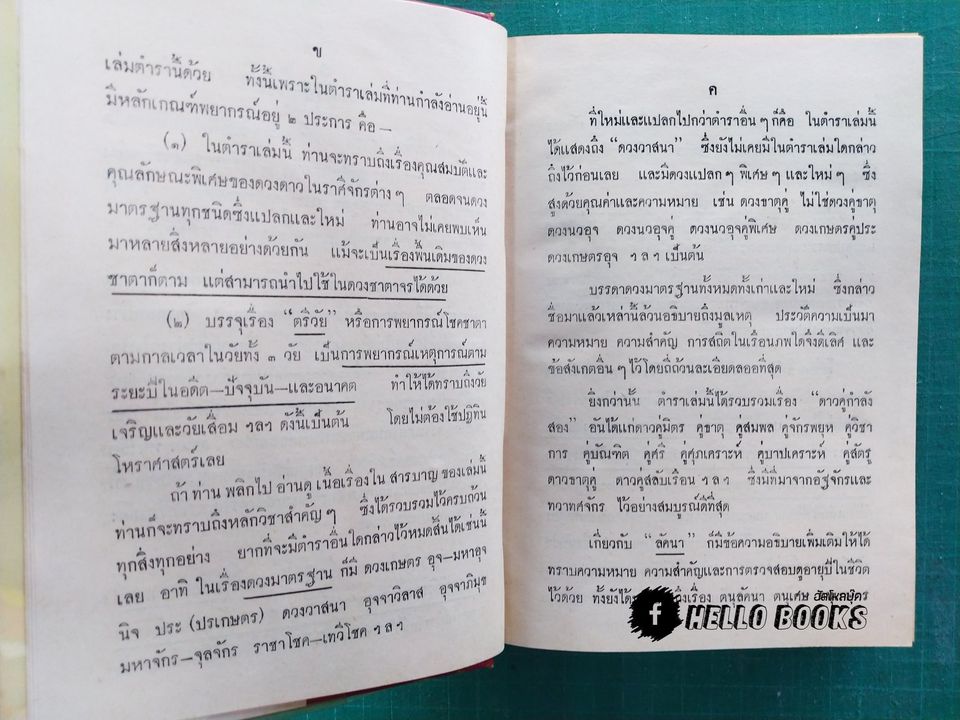 ข
เล่มตำรานี้ด้วย ทั้งนี้เพราะในตำราเล่มที่ท่านกำลังอ่านอยู่นี้
มีหลักเกณฑ์พยากรณ์อยู่ ๒ ประการ คือ—
(๑) ในตำราเล่มนี้ ท่านจะทราบถึงเรื่องคุณสมบัติและ
คุณลักษณะพิเศษของดวงดาวในราศีจักรต่างๆ ตลอดจนดวง
มาตรฐานทุกชนิดซึ่งแปลกและใหม่ ท่านอาจไม่เคยพบเห็น
มาหลายสิ่งหลายอย่างด้วยกัน แม้จะเป็นเรื่องพื้นเดิมของดวง
ชาตาก็ตาม แต่สามารถนำไปใช้ในดวงชาตาจรได้ด้วย
(๒) บรรจุเรื่อง “ตรีวัย” หรือการพยากรณ์โชคชาตา
ตามกาลเวลาในวัยทั้ง ๓ วัย เป็นการพยากรณ์เหตุการณ์ตาม
ระยะปีในอดีต—ปัจจุบัน—และอนาคต ทำให้ได้ทราบถึงวัย
เจริญและวัยเสื่อม ฯลฯ ดังนี้เป็นต้น โดยไม่ต้องใช้ปฏิทิน
โหราศาสตร์เลย
ถ้า ท่าน พลิกไป อ่านดู เนื้อเรื่องใน สารบาญ ของเล่มนี้
ท่านก็จะทราบถึงหลักวิชาสำคัญๆ ซึ่งได้รวบรวมไว้ครบถ้วน
ทุกสิ่งทุกอย่าง ยากที่จะมีตำราอื่นใดกล่าวไว้หมดสิ้นได้เช่นนี้
เลย อาทิ ในเรื่องดวงมาตรฐาน ก็มี ดวงเกษตร อุจ—มหาอุจ
นิจ ประ (ปรเกษตร) ดวงวาสนา อุจจาวิลาส อุจจาภิมุข
มหาจักร—จุลจักร ราชาโชค—เทวีโชค ฯลฯ
ค
ที่ใหม่และแปลกไปกว่าตำราอื่นๆ ก็คือ ในตำราเล่มนี้
ได้แสดงถึง “ดวงวาสนา” ซึ่งยังไม่เคยมีในตำราเล่มใดกล่าว
ถึงไว้ก่อนเลย และมีดวงแปลกๆ พิเศษๆ และใหม่ๆ ซึ่ง
สูงด้วยคุณค่าและความหมาย เช่น ดวงธาตุคู่ ไม่ใช่ดวงคู่ธาตุ
ดวงนวอุจ ดวงนวอุจคู่ ดวงนวอุจคู่พิเศษ ดวงเกษตรคู่ประ
ดวงเกษตรอุจ ฯลฯ เป็นต้น
บรรดาดวงมาตรฐานทั้งหมดทั้งเก่าและใหม่ ซึ่งกล่าว
ชื่อมาแล้วเหล่านี้ล้วนอธิบายถึงมูลเหตุ ประวัติความเป็นมา
ความหมาย ความสำคัญ การสถิตในเรือนภพใดจึงดีเลิศ และ
ข้อสังเกตอื่นๆ ไว้โดยถี่ถ้วนละเอียดตลอดที่สุด
ยิ่งกว่านั้น ตำราเล่มนี้ได้รวบรวมเรื่อง “ดาวคู่กำลัง
สอง” อันได้แก่ดาวคู่มิตร คู่ธาตุ คู่สมพล คู่จักรพยุห คู่วิชา
การ คู่บัณฑิต คู่ศรี คู่ศุภเคราะห์ คู่บาปเคราะห์ คู่ศัตรู
ดาวธาตุคู่ ดาวคู่สลับเรือน ฯลฯ ซึ่งมีที่มาจากอัฐจักรและ
ทวาทศจักร ไว้อย่างสมบูรณ์ดีที่สุด
เกี่ยวกับ “ลัคนา” ก็มีข้อความอธิบายเพิ่มเติมให้ได้
ทราบความหมาย ความสำคัญและการตรวจสอบดูอายุปีในชีวิต
ไว้ด้วย ทั้งยังได้ เรื่อง ตนุลัคนา ตนุเศษ
HELLO BOOKS